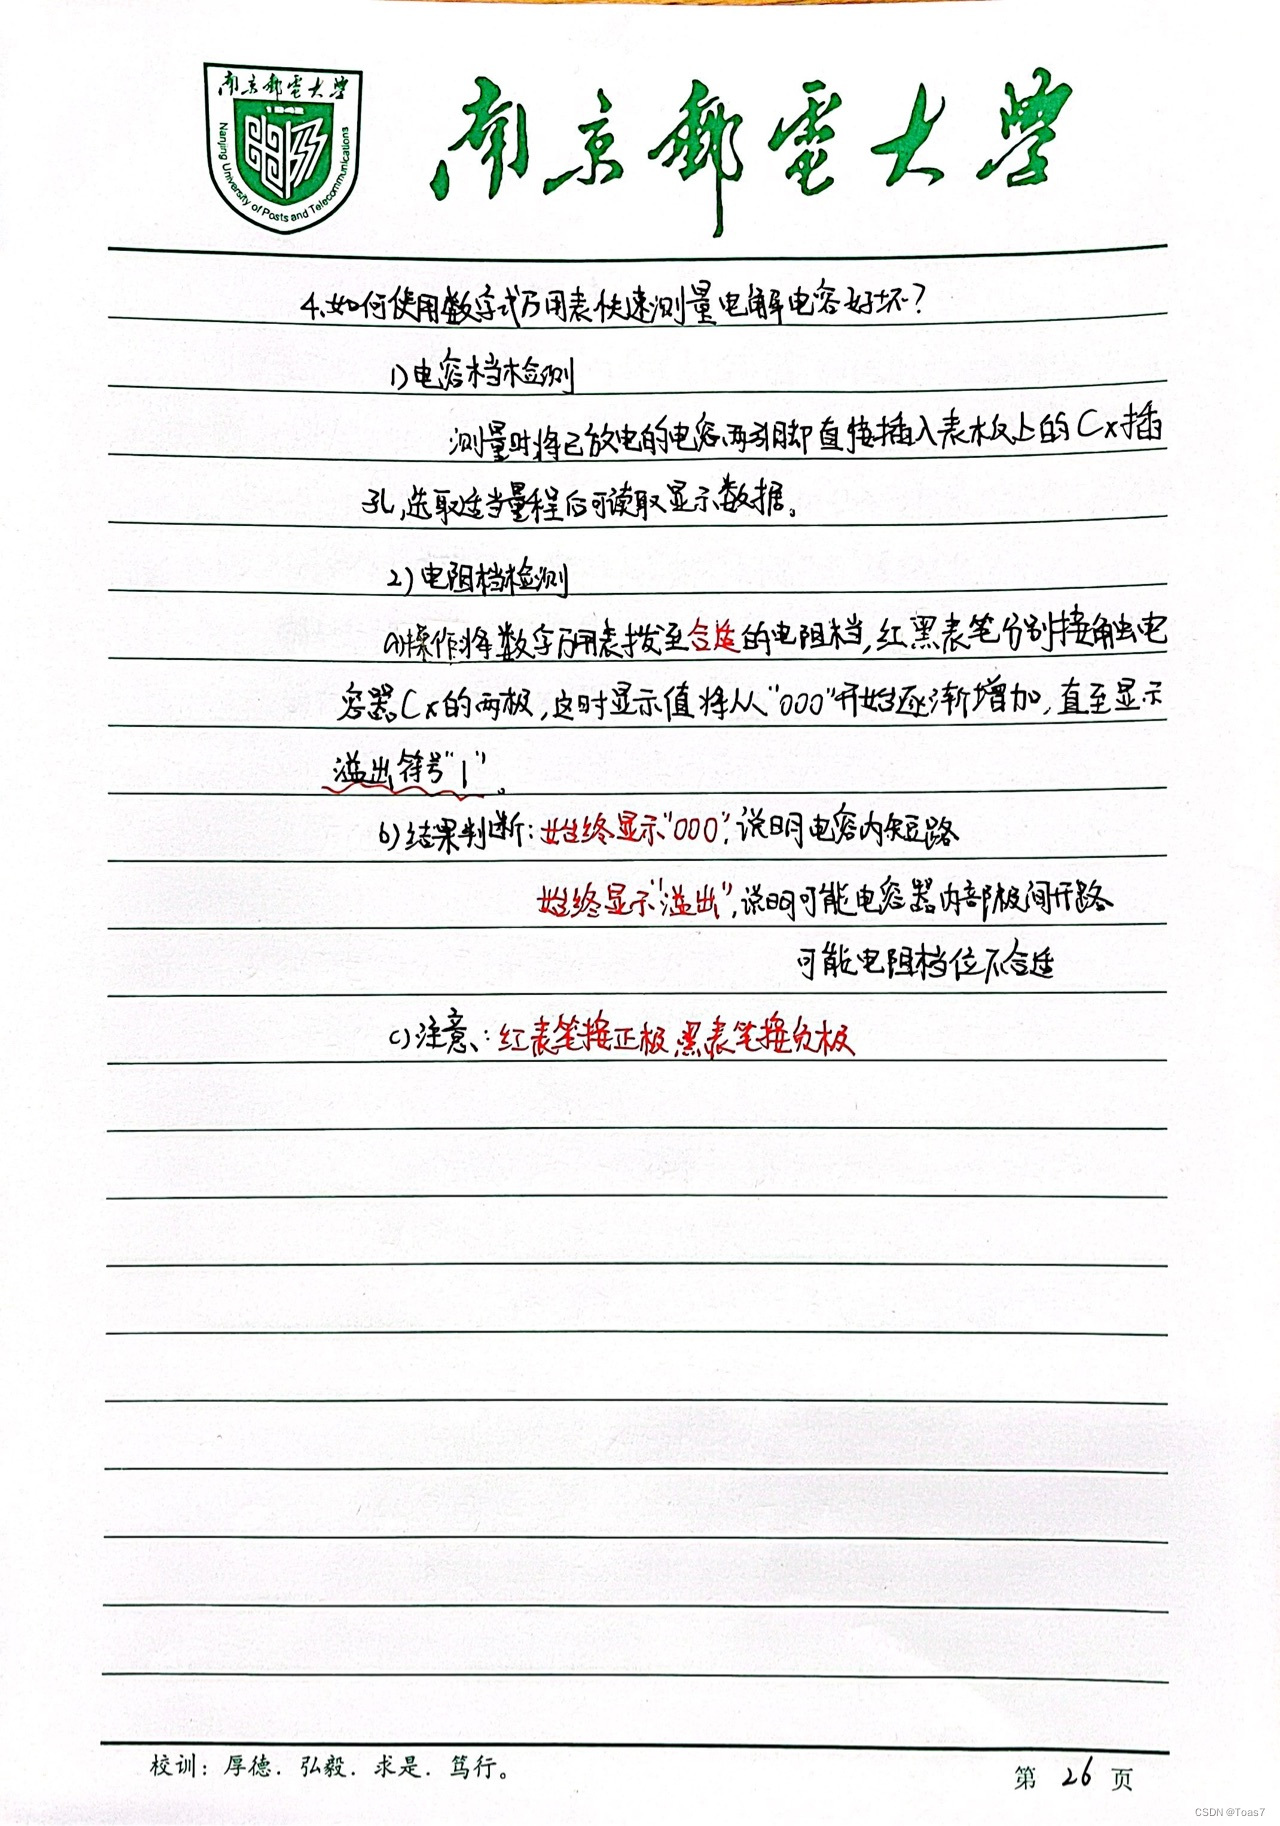 南京郵電大學
Nanjing University of Posts and Telecommunications
南京郵電大學
4、如何使用数字式万用表快速测量电解电容好坏?
1)电容档检测
测量时将已放电的电容两引脚直接插入表板上的Cx插
孔,选取适当量程后可读取显示数据。
2)电阻档检测
a)操作:将数字万用表拨至合适的电阻档,红黑表笔分别接触电
容器Cx的两极,这时显示值将从"000"开始逐渐增加,直至显示
溢出符号"1"。
b)结果判断:始终显示"000",说明电容内短路
始终显示"溢出",说明可能电容器内部极间开路
可能电阻档位不合适
c)注意:红表笔接正极,黑表笔接负极
校训:厚德.弘毅.求是.笃行。
第 26 页
CSDN @Toas7